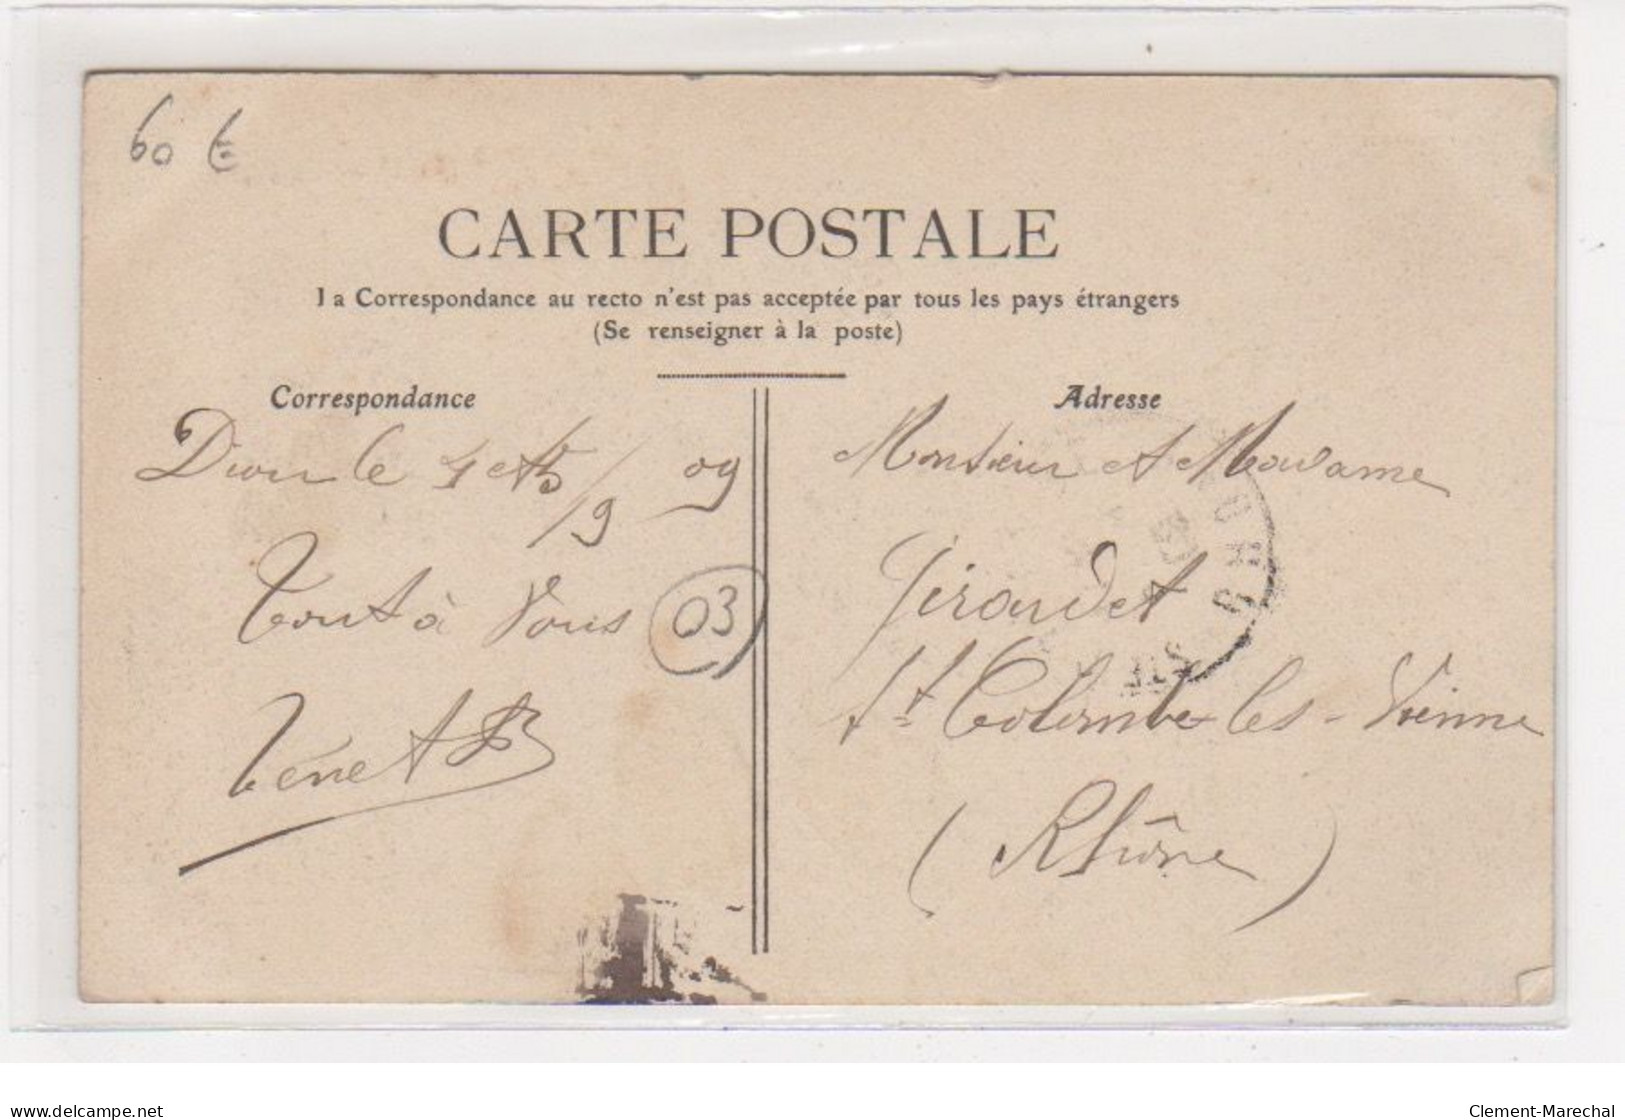 60 €
CARTE POSTALE
La Correspondance au recto n'est pas acceptée par tous les pays étrangers
(Se renseigner à la poste)
Correspondance
Diou le 9 09
Tout à Vous
03
Ténet
Adresse
Monsieur et Madame
Giraudet
St Colombe les-Vienne
(Rhône)
STE
RHO
delcampe.net
Clement-Marechal